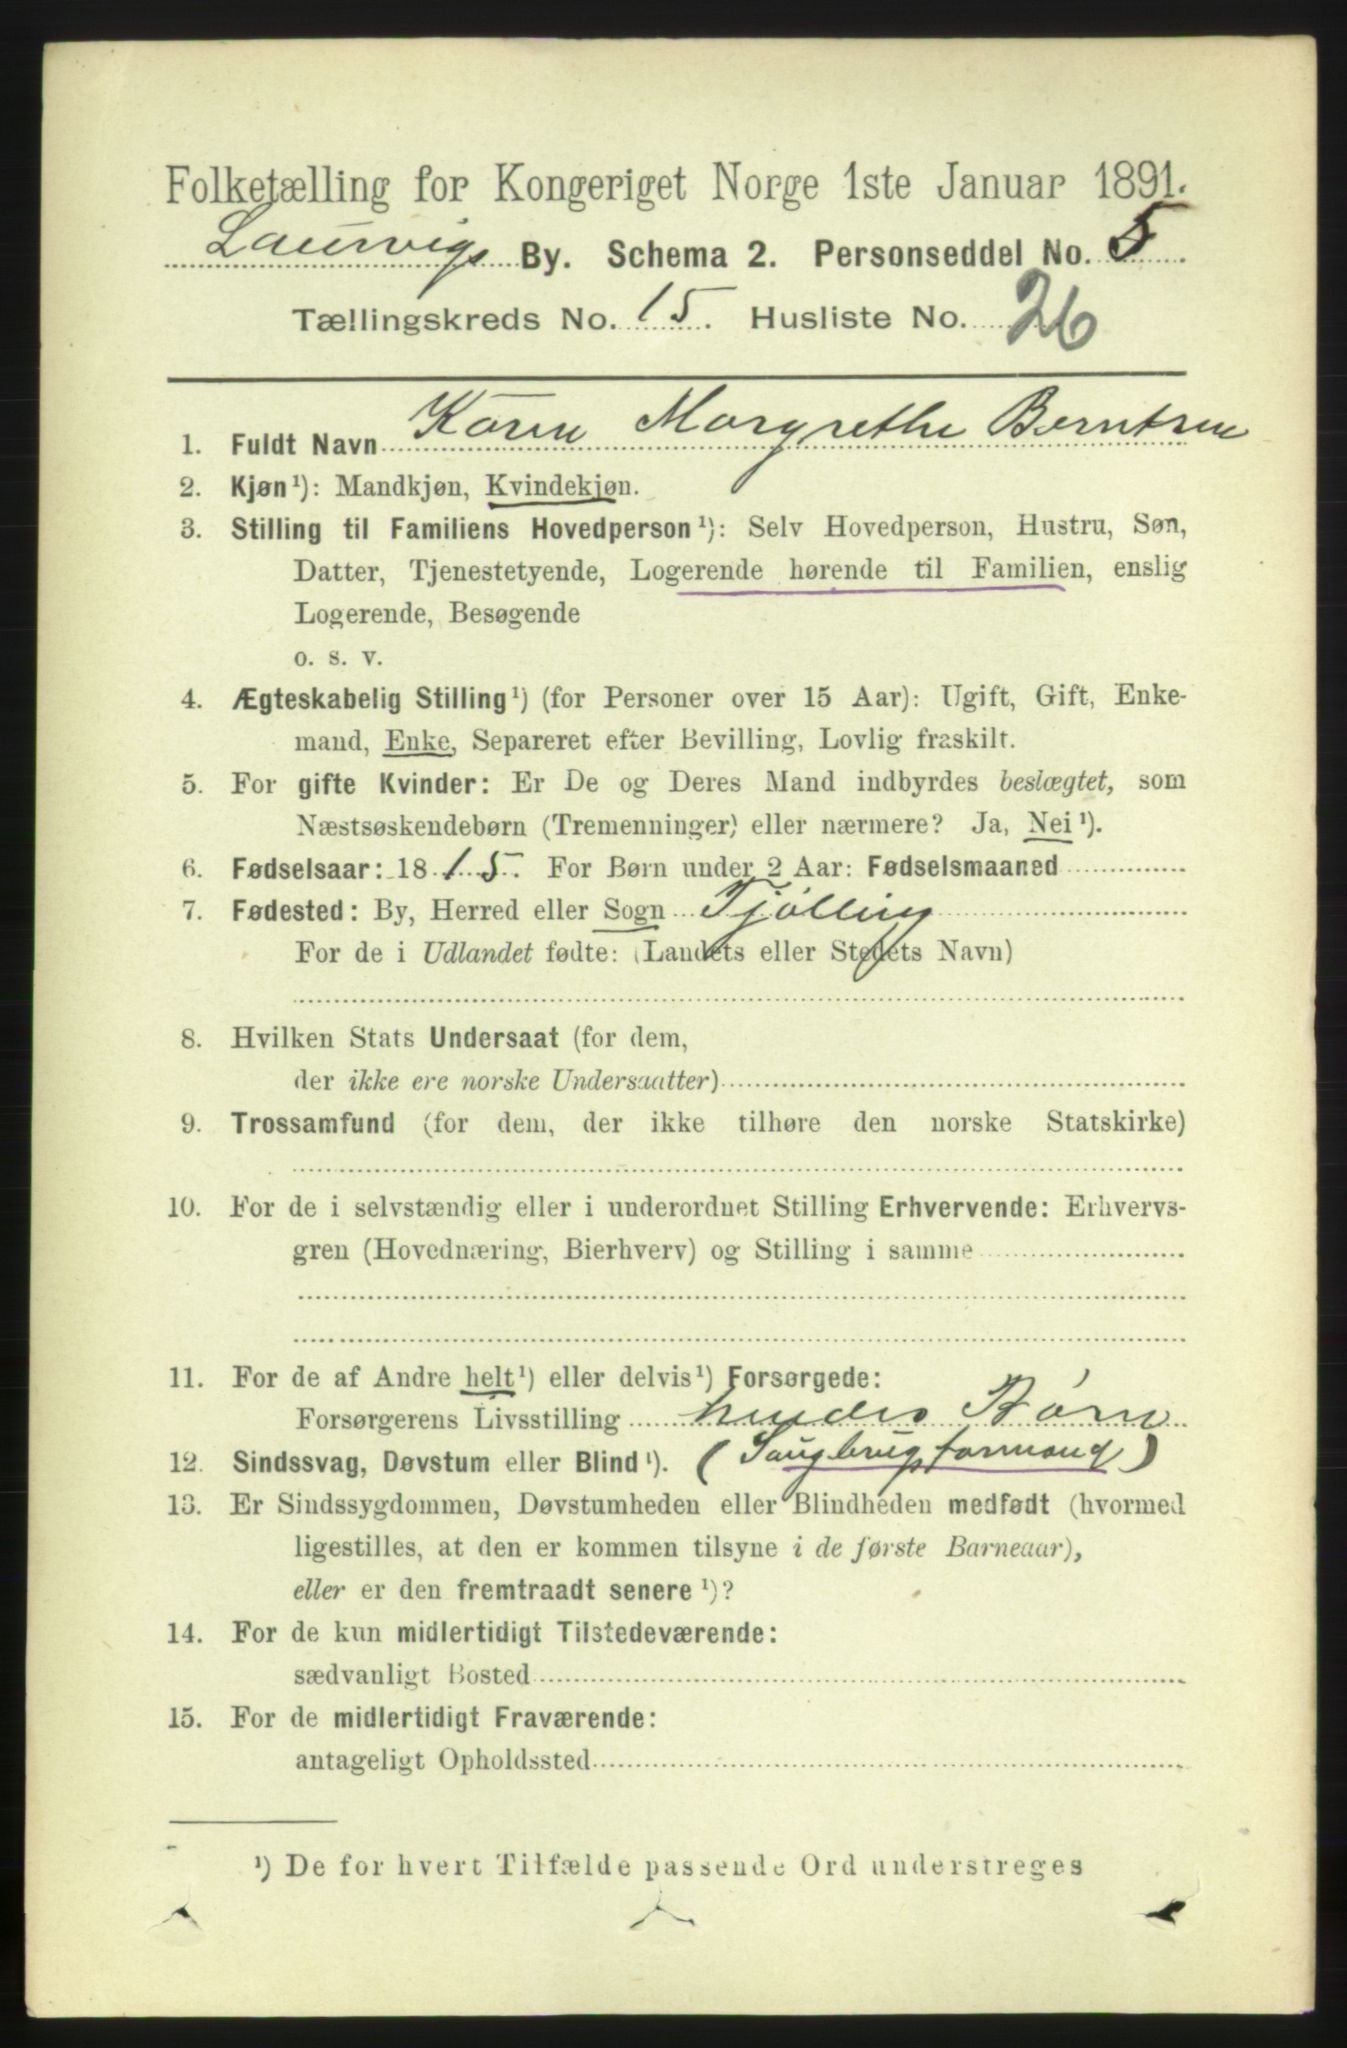 Folketælling for Kongeriget Norge 1ste Januar 1891.
Laurvigs By. Schema 2. Personseddel No. 5
Tællingskreds No. 15. Husliste No. 26
1. Fuldt Navn Karen Margrethe Berntsen
2. Kjøn¹): Mandkjøn, Kvindekjøn.
3. Stilling til Familiens Hovedperson¹): Selv Hovedperson, Hustru, Søn,
Datter, Tjenestetyende, Logerende hørende til Familien, enslig
Logerende, Besøgende
o. s. v.
4. Ægteskabelig Stilling¹) (for Personer over 15 Aar): Ugift, Gift, Enke-
mand, Enke, Separeret efter Bevilling, Lovlig fraskilt.
5. For gifte Kvinder: Er De og Deres Mand indbyrdes beslægtet, som
Næstsøskendebørn (Tremenninger) eller nærmere? Ja, Nei¹).
6. Fødselsaar: 1815. For Børn under 2 Aar: Fødselsmaaned
7. Fødested: By, Herred eller Sogn Tjølling
For de i Udlandet fødte: (Landets eller Stedets Navn)
8. Hvilken Stats Undersaat (for dem,
der ikke ere norske Undersaatter)
9. Trossamfund (for dem, der ikke tilhøre den norske Statskirke)
10. For de i selvstændig eller i underordnet Stilling Erhvervende: Erhvervs-
gren (Hovednæring, Bierhverv) og Stilling i samme
11. For de af Andre helt¹) eller delvis¹) Forsørgede:
Forsørgerens Livsstilling hendes Børn
12. Sindssvag, Døvstum eller Blind¹). (Saugbrugsformand)
13. Er Sindssygdommen, Døvstumheden eller Blindheden medfødt (hvormed
ligestilles, at den er kommen tilsyne i de første Barneaar),
eller er den fremtraadt senere¹)?
14. For de kun midlertidigt Tilstedeværende:
sædvanligt Bosted
15. For de midlertidigt Fraværende:
antageligt Opholdssted
¹) De for hvert Tilfælde passende Ord understreges